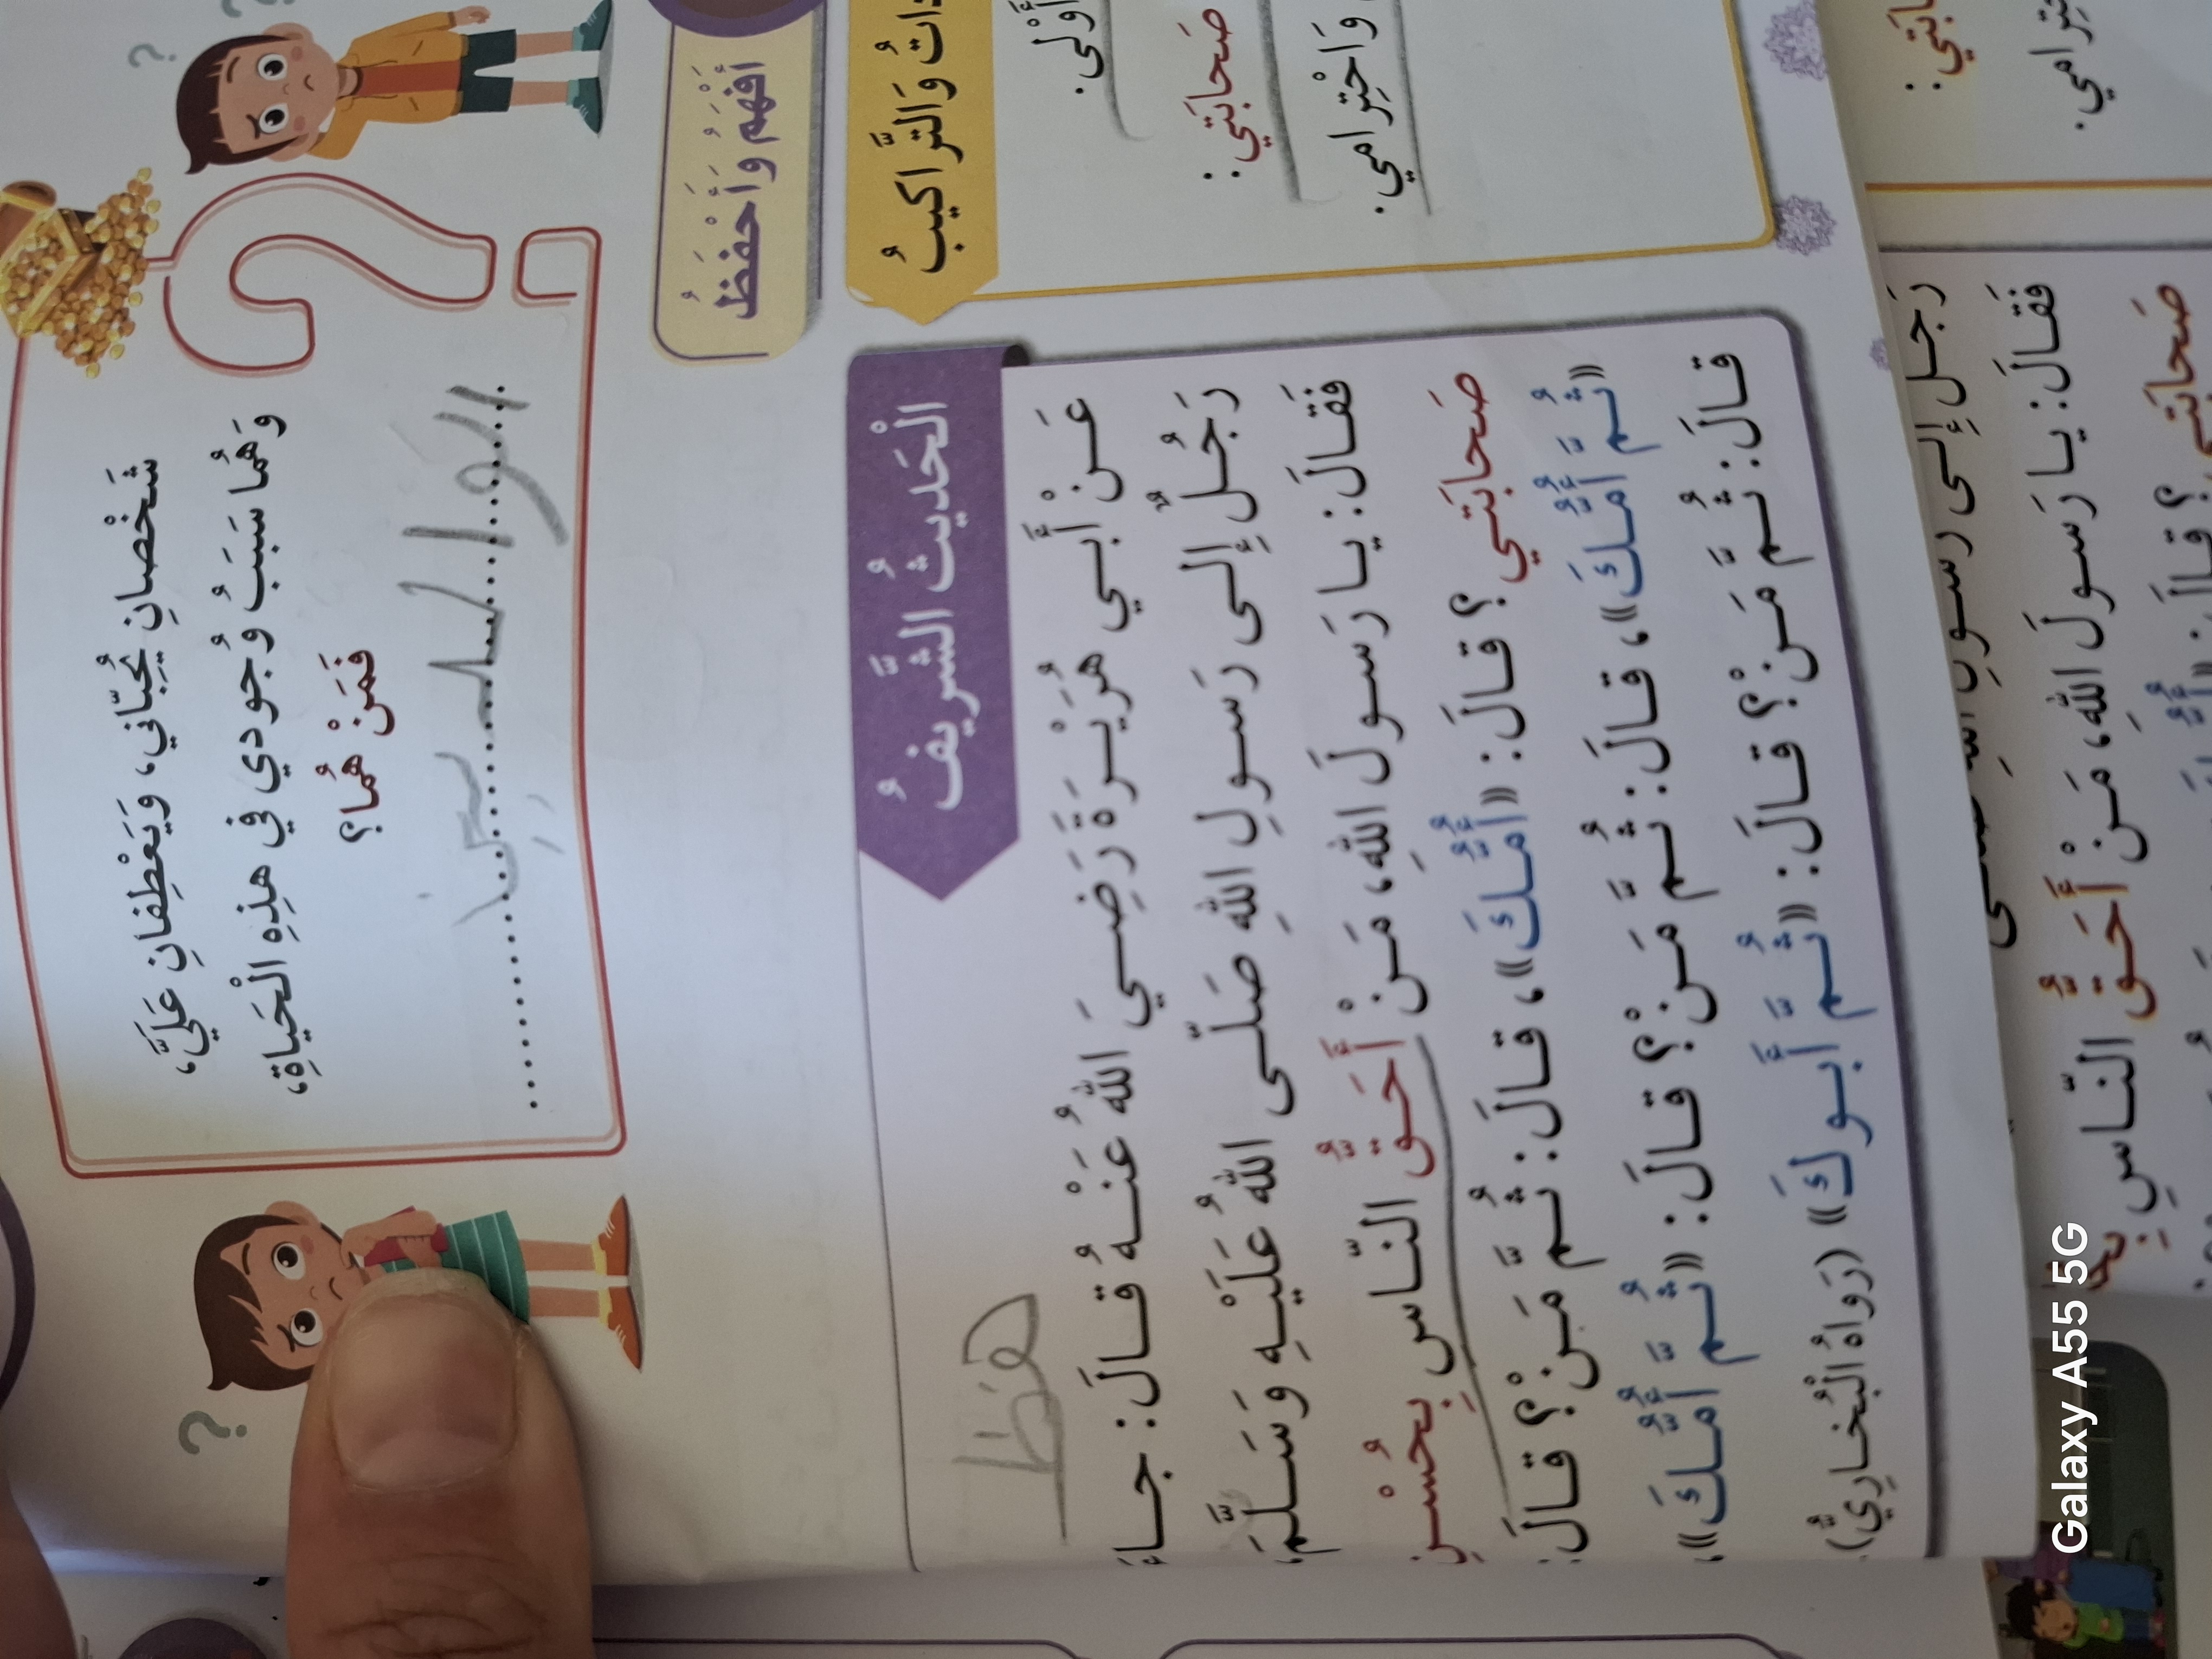 شَخْصانِ يُحِبّانِي، وَيَعْطِفانِ عَلَيَّ،
وَهُما سَبَبُ وُجودي في هذِهِ الْحَياةِ،
فَمَنْ هُما؟
الوالدين
؟
أَفْهَمُ وَأَحْفَظُ
الْحَديثُ الشَّريفُ
حفظ
عَنْ أَبي هُرَيْرَةَ رَضِيَ اللهُ عَنْهُ قالَ: جاءَ
رَجُلٌ إِلى رَسولِ اللهِ صَلّى اللهُ عَلَيْهِ وَسَلَّمَ،
فَقالَ: يا رَسولَ اللهِ، مَنْ أَحَقُّ النّاسِ بِحُسْنِ
صَحابَتي؟ قالَ: «أُمُّكَ»، قالَ: ثُمَّ مَنْ؟ قالَ:
«ثُمَّ أُمُّكَ»، قالَ: ثُمَّ مَنْ؟ قالَ: «ثُمَّ أُمُّكَ»،
قالَ: ثُمَّ مَنْ؟ قالَ: «ثُمَّ أَبوكَ» (رَواهُ الْبُخارِيُّ).
وَالتَّراكيبُ
أَوْلى.
صَحابَتي:
وَاحْتِرامي.
رَجُلٌ إِلى رَسولِ
فَقالَ: يا رَسولَ اللهِ، مَنْ أَحَقُّ النّاسِ
صَحابَتي؟ قالَ:
احْتِرامي.
Galaxy A55 5G